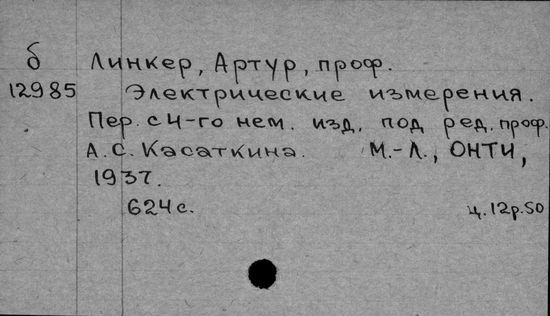 б Линкер, Артур, проф.
12985 Электрические измерения.
Пер. с 4-го нем. изд. под ред. проф.
А. С. Касаткина. М.-Л., ОНТИ,
1937.
624 с. ц. 12р.50